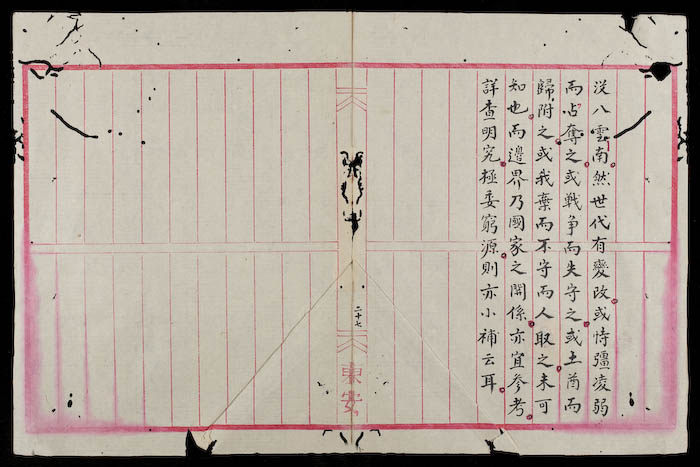 没入雲南然世代有變改或恃彊凌弱
而占奪之或戰爭而失守之或土酋而
歸附之或我棄而不守而人取之未可
知也而邊界乃國家之関係亦宜參考
詳查明究極委窮源則亦小補云耳
二十七
東安